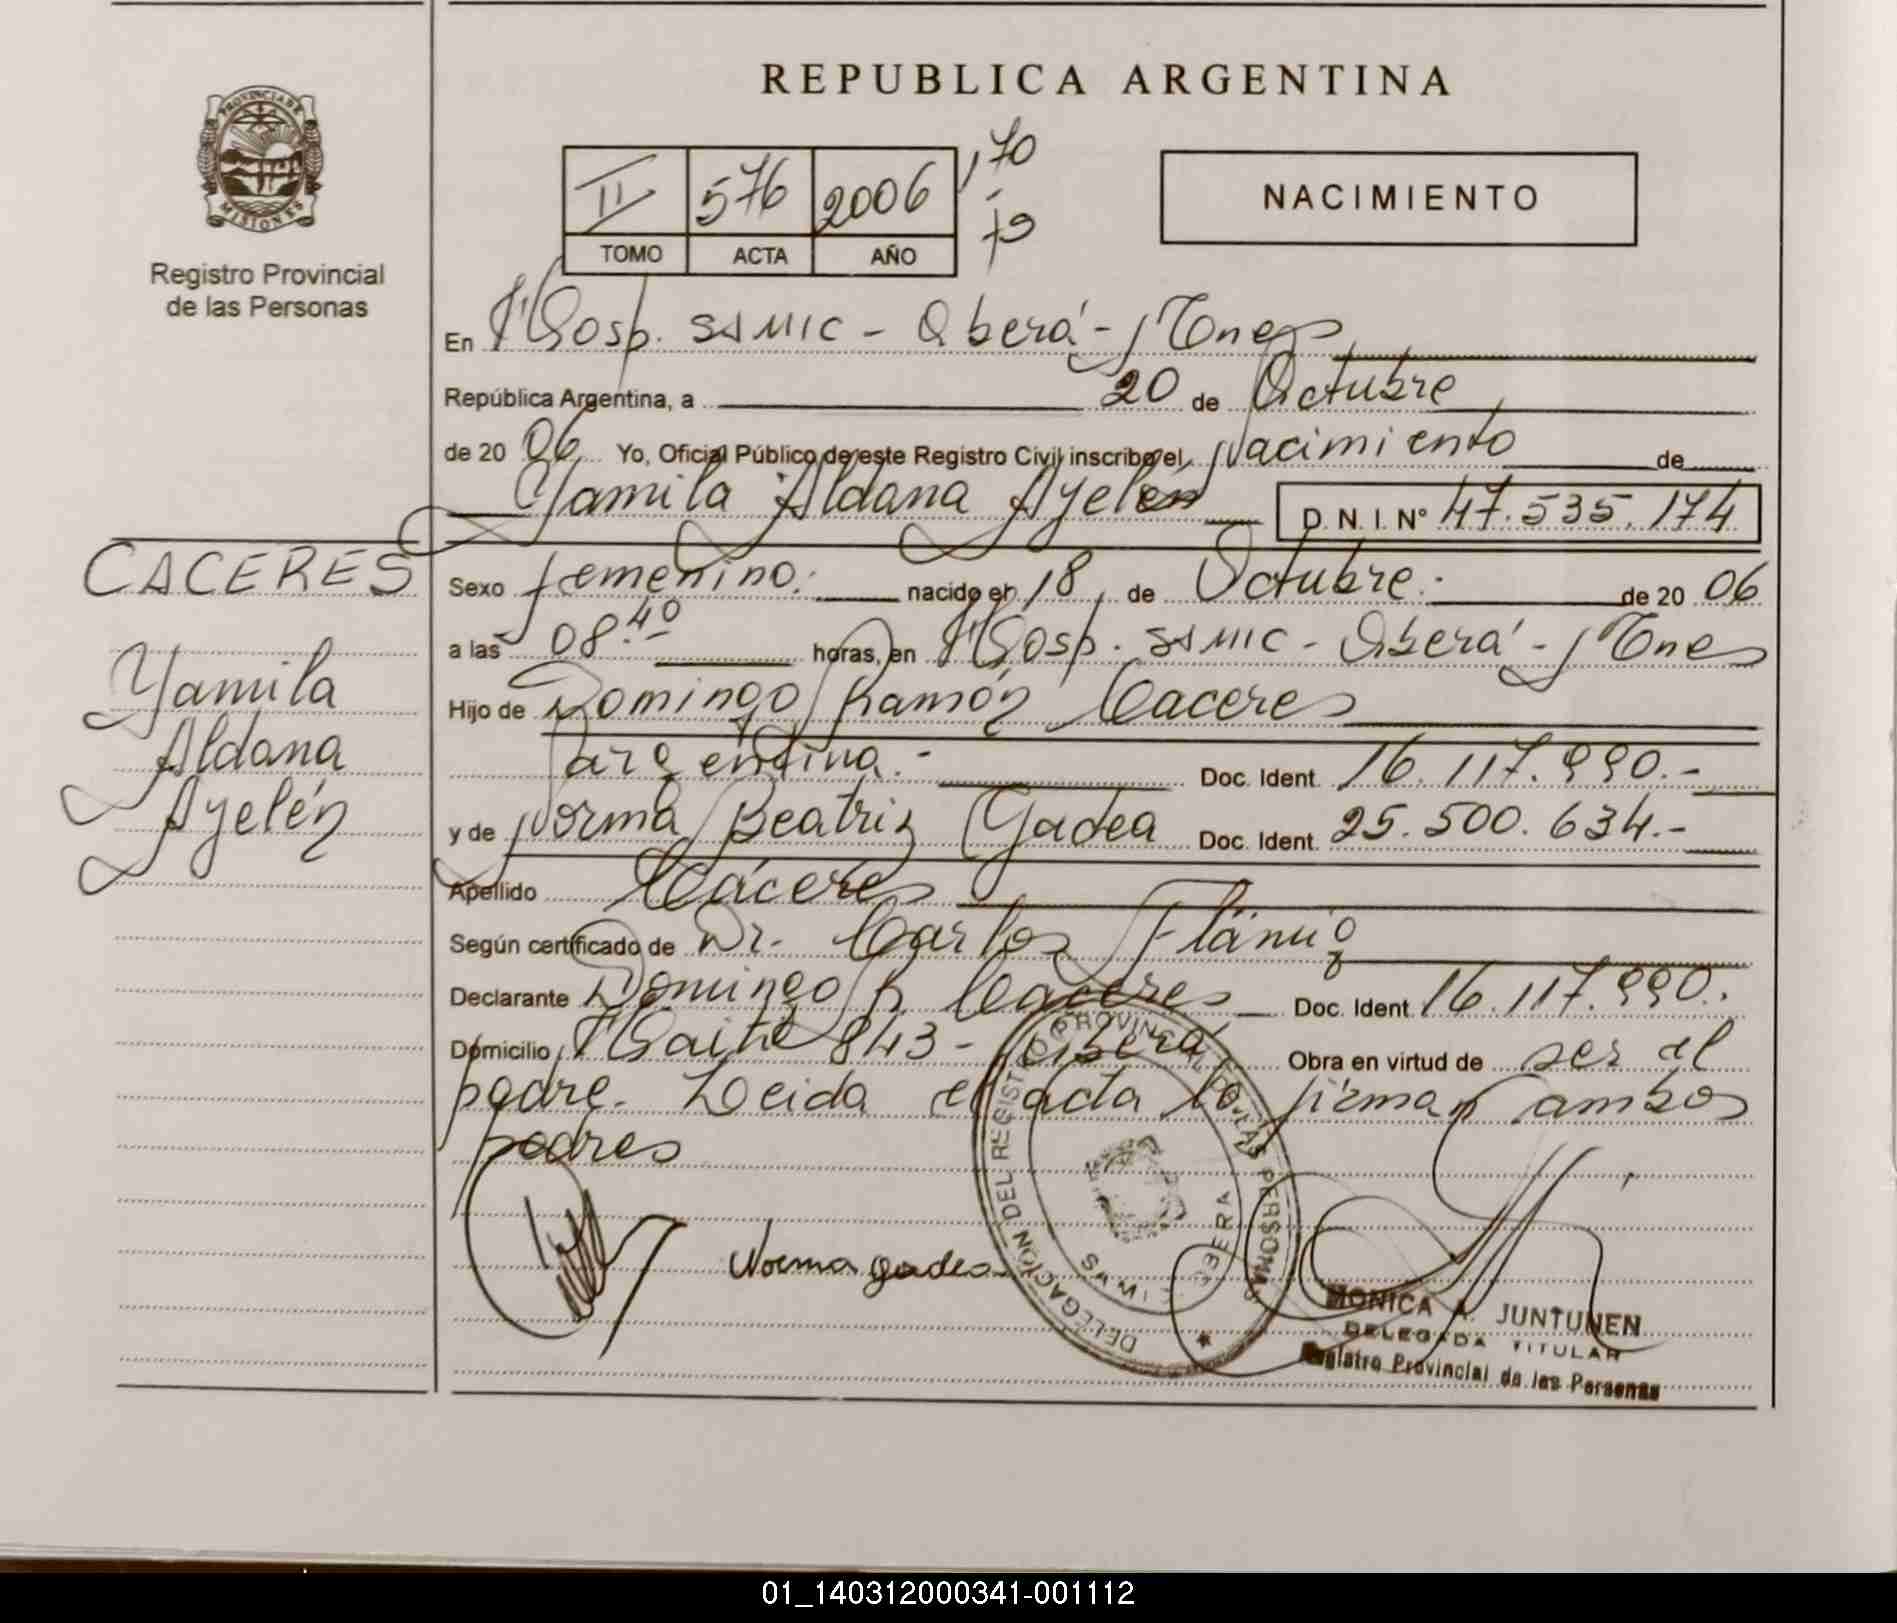 REPUBLICA ARGENTINA
PROVINCIA DE
MISIONES
Registro Provincial
de las Personas
II 576 2006
TOMO ACTA AÑO
NACIMIENTO
En Hosp. SAMIC - Oberá - Mnes
República Argentina, a 20 de Octubre
de 20 06 Yo, Oficial Público de este Registro Civil inscribo el Nacimiento de
Yamila Aldana Ayelén D.N.I. Nº 47.535.174
CACERES
Yamila
Aldana
Ayelén
Sexo femenino. nacido el 18 de Octubre. de 20 06
a las 08.40 horas, en Hosp. SAMIC - Oberá - Mnes
Hijo de Domingo Ramón Caceres
argentina.- Doc. Ident. 16.117.990.-
y de Norma Beatriz Gadea Doc. Ident. 25.500.634.-
Apellido Cáceres
Según certificado de Dr. Carlos
Declarante Domingo R. Caceres Doc. Ident 16.117.990.
Domicilio Haití 843 - Oberá Obra en virtud de ser el
padre. Leida el acta la firman ambos
padres
Norma gadea
DELEGACIÓN DEL REGISTRO PROVINCIAL DE LAS PERSONAS
OBERA
MONICA A. JUNTUNEN
DELEGADA TITULAR
Registro Provincial de las Personas
01_140312000341-001112